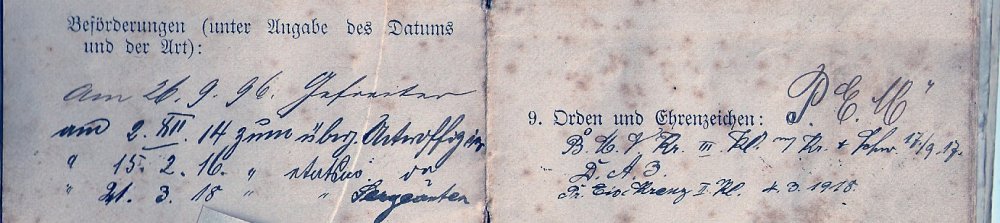 Beförderungen (unter Angabe des Datums
und der Art):
Am 26. 9. 96. Gefreiter
am 2. XII. 14 zum überz. Unteroffizier
" 15. 2. 16. " etatsm. do
" 21. 3. 18 " " Sergeanten
9. Orden und Ehrenzeichen:
B. M. V. Kr. III. Kl. m/ Kr. & Schw 17/9. 17.
D. A. 3.
Pr. Eis. Kreuz II. Kl. 4. 3. 1918.